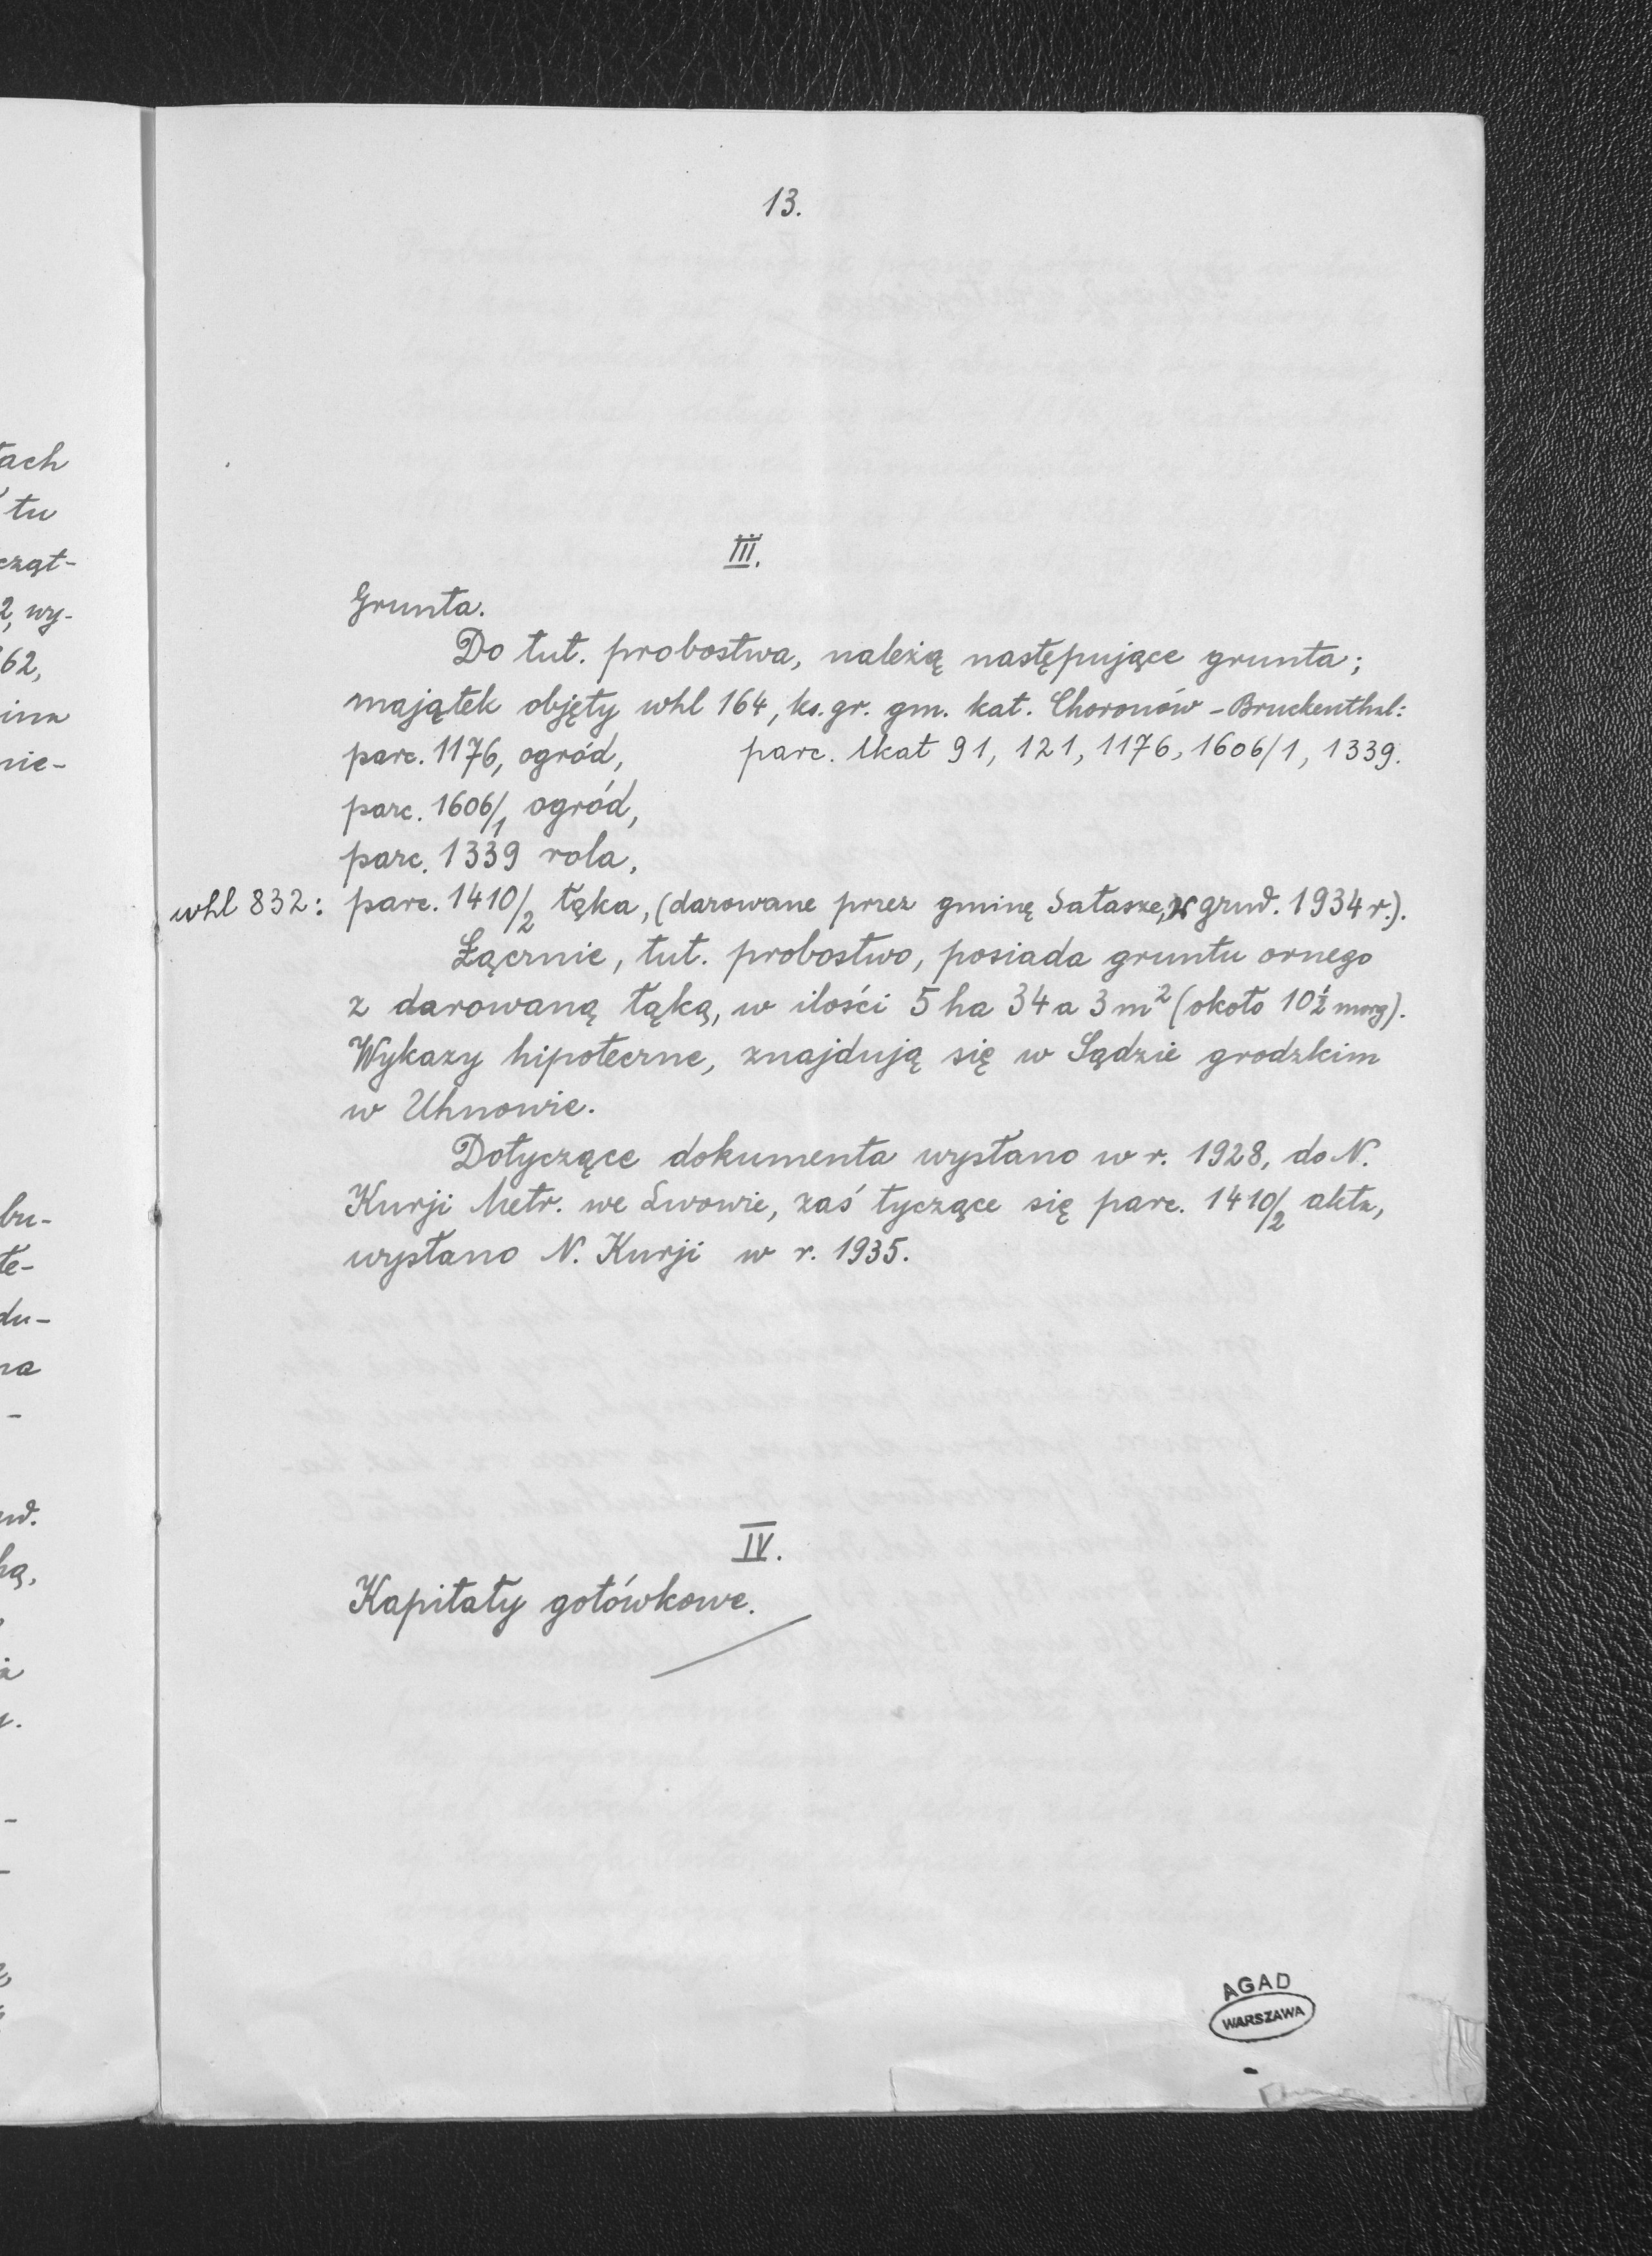 13.
tach
tu
cząt-
2, wy-
62,
nie-
III.
Grunta.
Do tut. probostwa, należą następujące grunta;
majątek objęty whl 164, ks. gr. gm. kat. Choronów - Bruckenthal:
parc. 1176, ogród, parc. lkat 91, 121, 1176, 1606/1, 1339.
parc. 1606/1 ogród,
parc. 1339 rola,
whl 832: parc. 1410/2 łąka, (darowane przez gminę Sałasze, grud. 1934 r.).
Łącznie, tut. probostwo, posiada gruntu ornego
z darowaną łąką, w ilości 5 ha 34 a 3 m² (około 10 ½ morg).
Wykazy hipoteczne, znajdują się w Sądzie grodzkim
w Uhnowie.
Dotyczące dokumenta wysłano w r. 1928, do N.
Kurji Metr. we Lwowie, zaś tyczące się parc. 1410/2 akta,
wysłano N. Kurji w r. 1935.
bu-
te-
du-
na
-
IV.
Kapitały gotówkowe.
AGAD
WARSZAWA